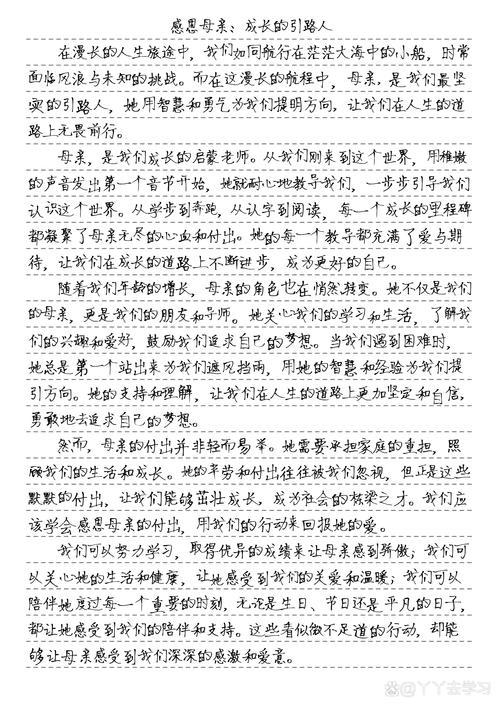 感恩母亲、成长的引路人
在漫长的人生旅途中，我们如同航行在茫茫大海中的小船，时常
面临风浪与未知的挑战。而在这漫长的航程中，母亲，是我们最坚
实的引路人，她用智慧和勇气为我们提明方向，让我们在人生的道
路上无畏前行。
母亲，是我们成长的启蒙老师。从我们刚来到这个世界，用稚嫩
的声音发出第一个音节开始，她就耐心地教导我们，一步步引导我们
认识这个世界。从学步到奔跑，从认字到阅读，每一个成长的里程碑
都凝聚了母亲无尽的心血和付出。她的每一个教导都充满了爱与期
待，让我们在成长的道路上不断进步，成为更好的自己。
随着我们年龄的增长，母亲的角色也在悄然转变。她不仅是我们
的母亲，更是我们的朋友和导师。她关心我们的学习和生活，了解我
们的兴趣和爱好，鼓励我们追求自己的梦想。当我们遇到困难时，
她总是第一个站出来为我们遮风挡雨，用她的智慧和经验为我们提
引方向。她的支持和理解，让我们在人生的道路上更加坚定和自信，
勇敢地去追求自己的梦想。
然而，母亲的付出并非轻而易举。她需要承担家庭的重担，照
顾我们的生活和成长。她的辛劳和付出往往被我们忽视，但正是这些
默默的付出，让我们能够茁壮成长，成为社会的栋梁之才。我们应
该学会感恩母亲的付出，用我们的行动来回报她的爱。
我们可以努力学习，取得优异的成绩来让母亲感到骄傲；我们可
以关心她的生活和健康，让她感受到我们的关爱和温暖；我们可以
陪伴她度过每一个重要的时刻，无论是生日、节日还是平凡的日子，
都让她感受到我们的陪伴和支持。这些看似微不足道的行动，却能
够让母亲感受到我们深深的感激和爱意。
丫丫去学习